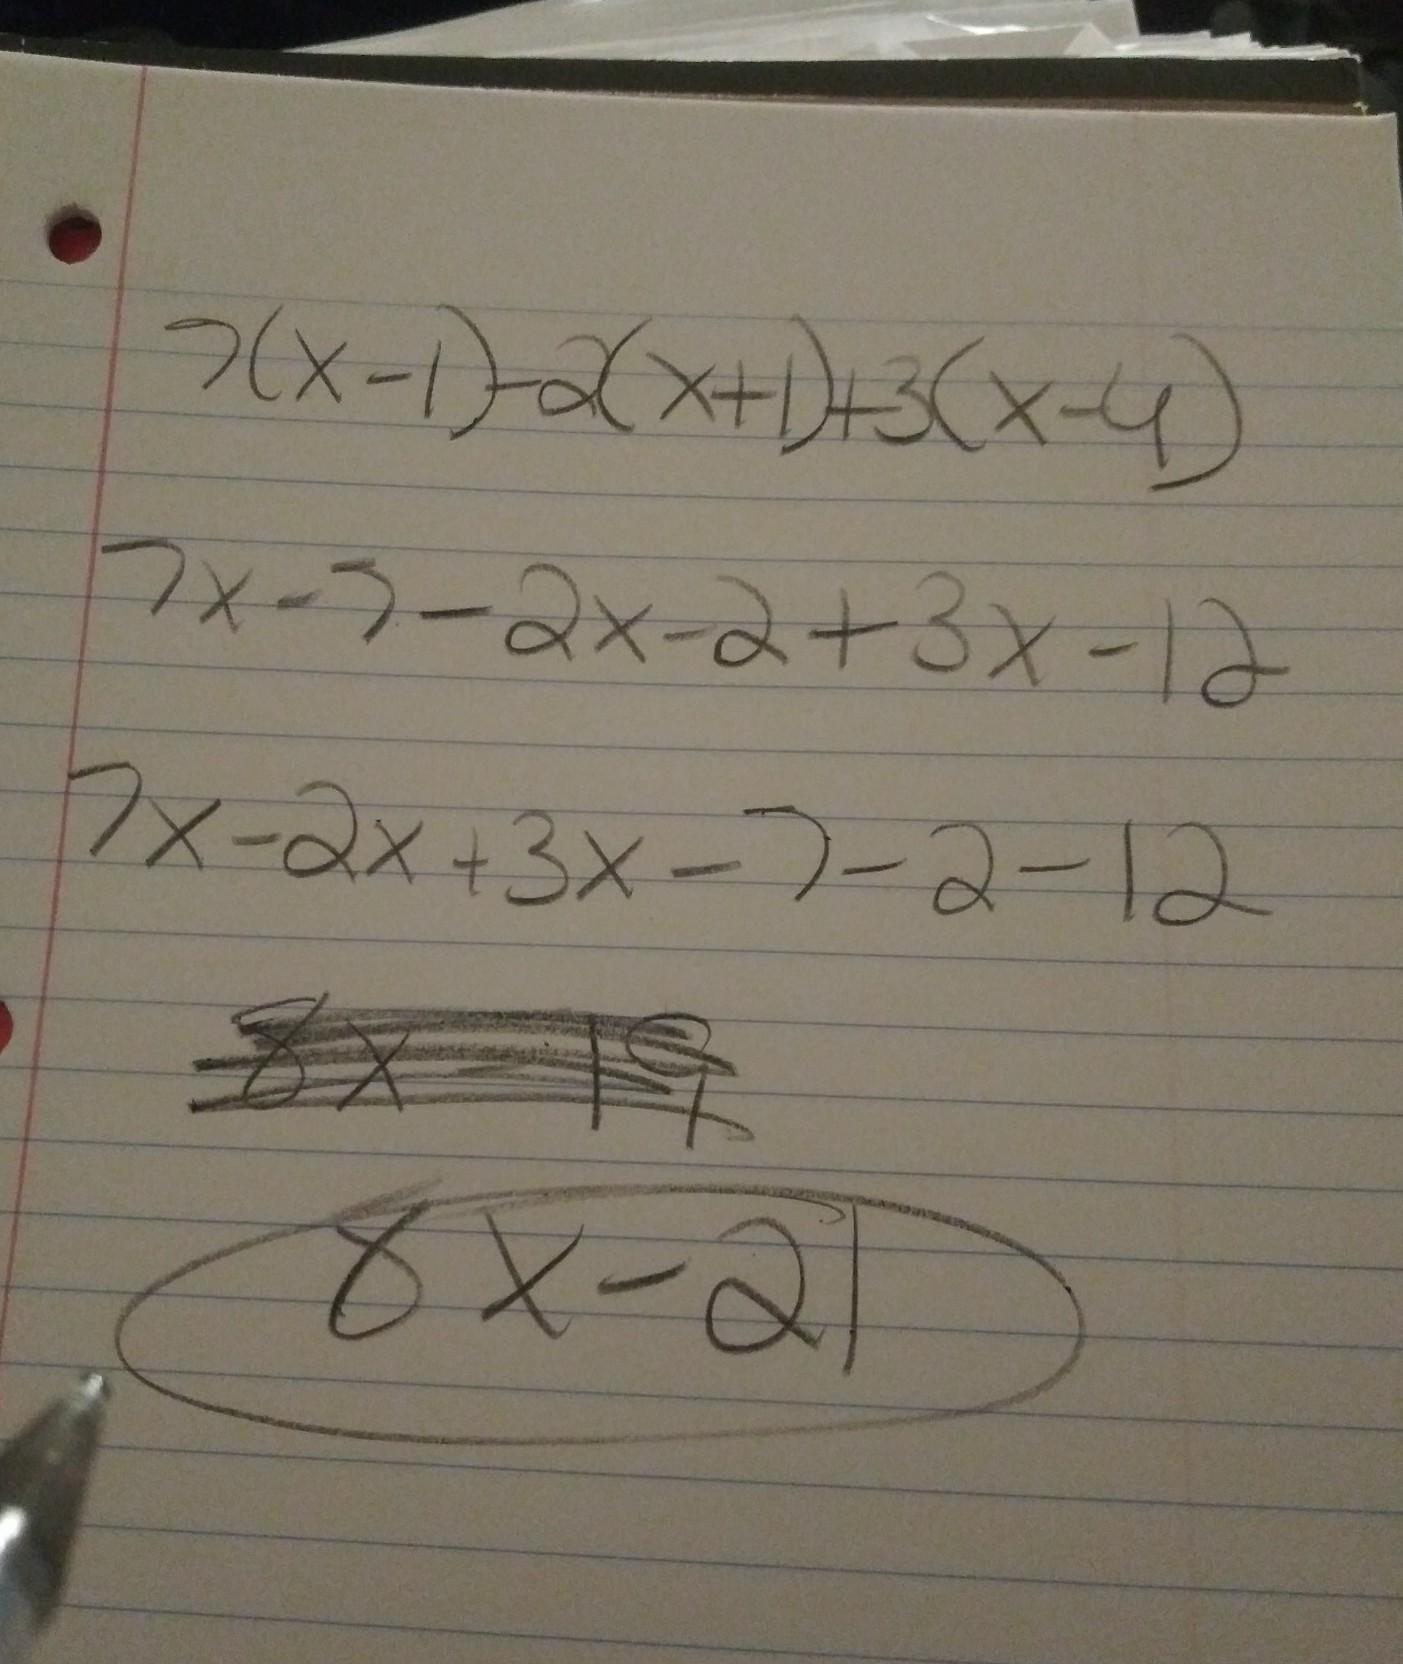 7(x-1)-2(x+1)+3(x-4)
7x-7-2x-2+3x-12
7x-2x+3x-7-2-12
8x-19
8x-21